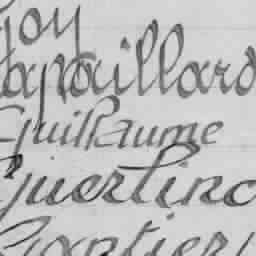 Goy
Papouillard
Guillaume
Guerlinc
Gontier